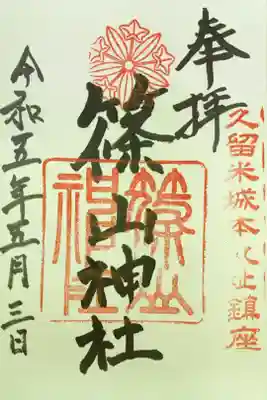 奉拝
久留米城本丸址鎮座
篠山神社
篠山神社
令和五年五月三日